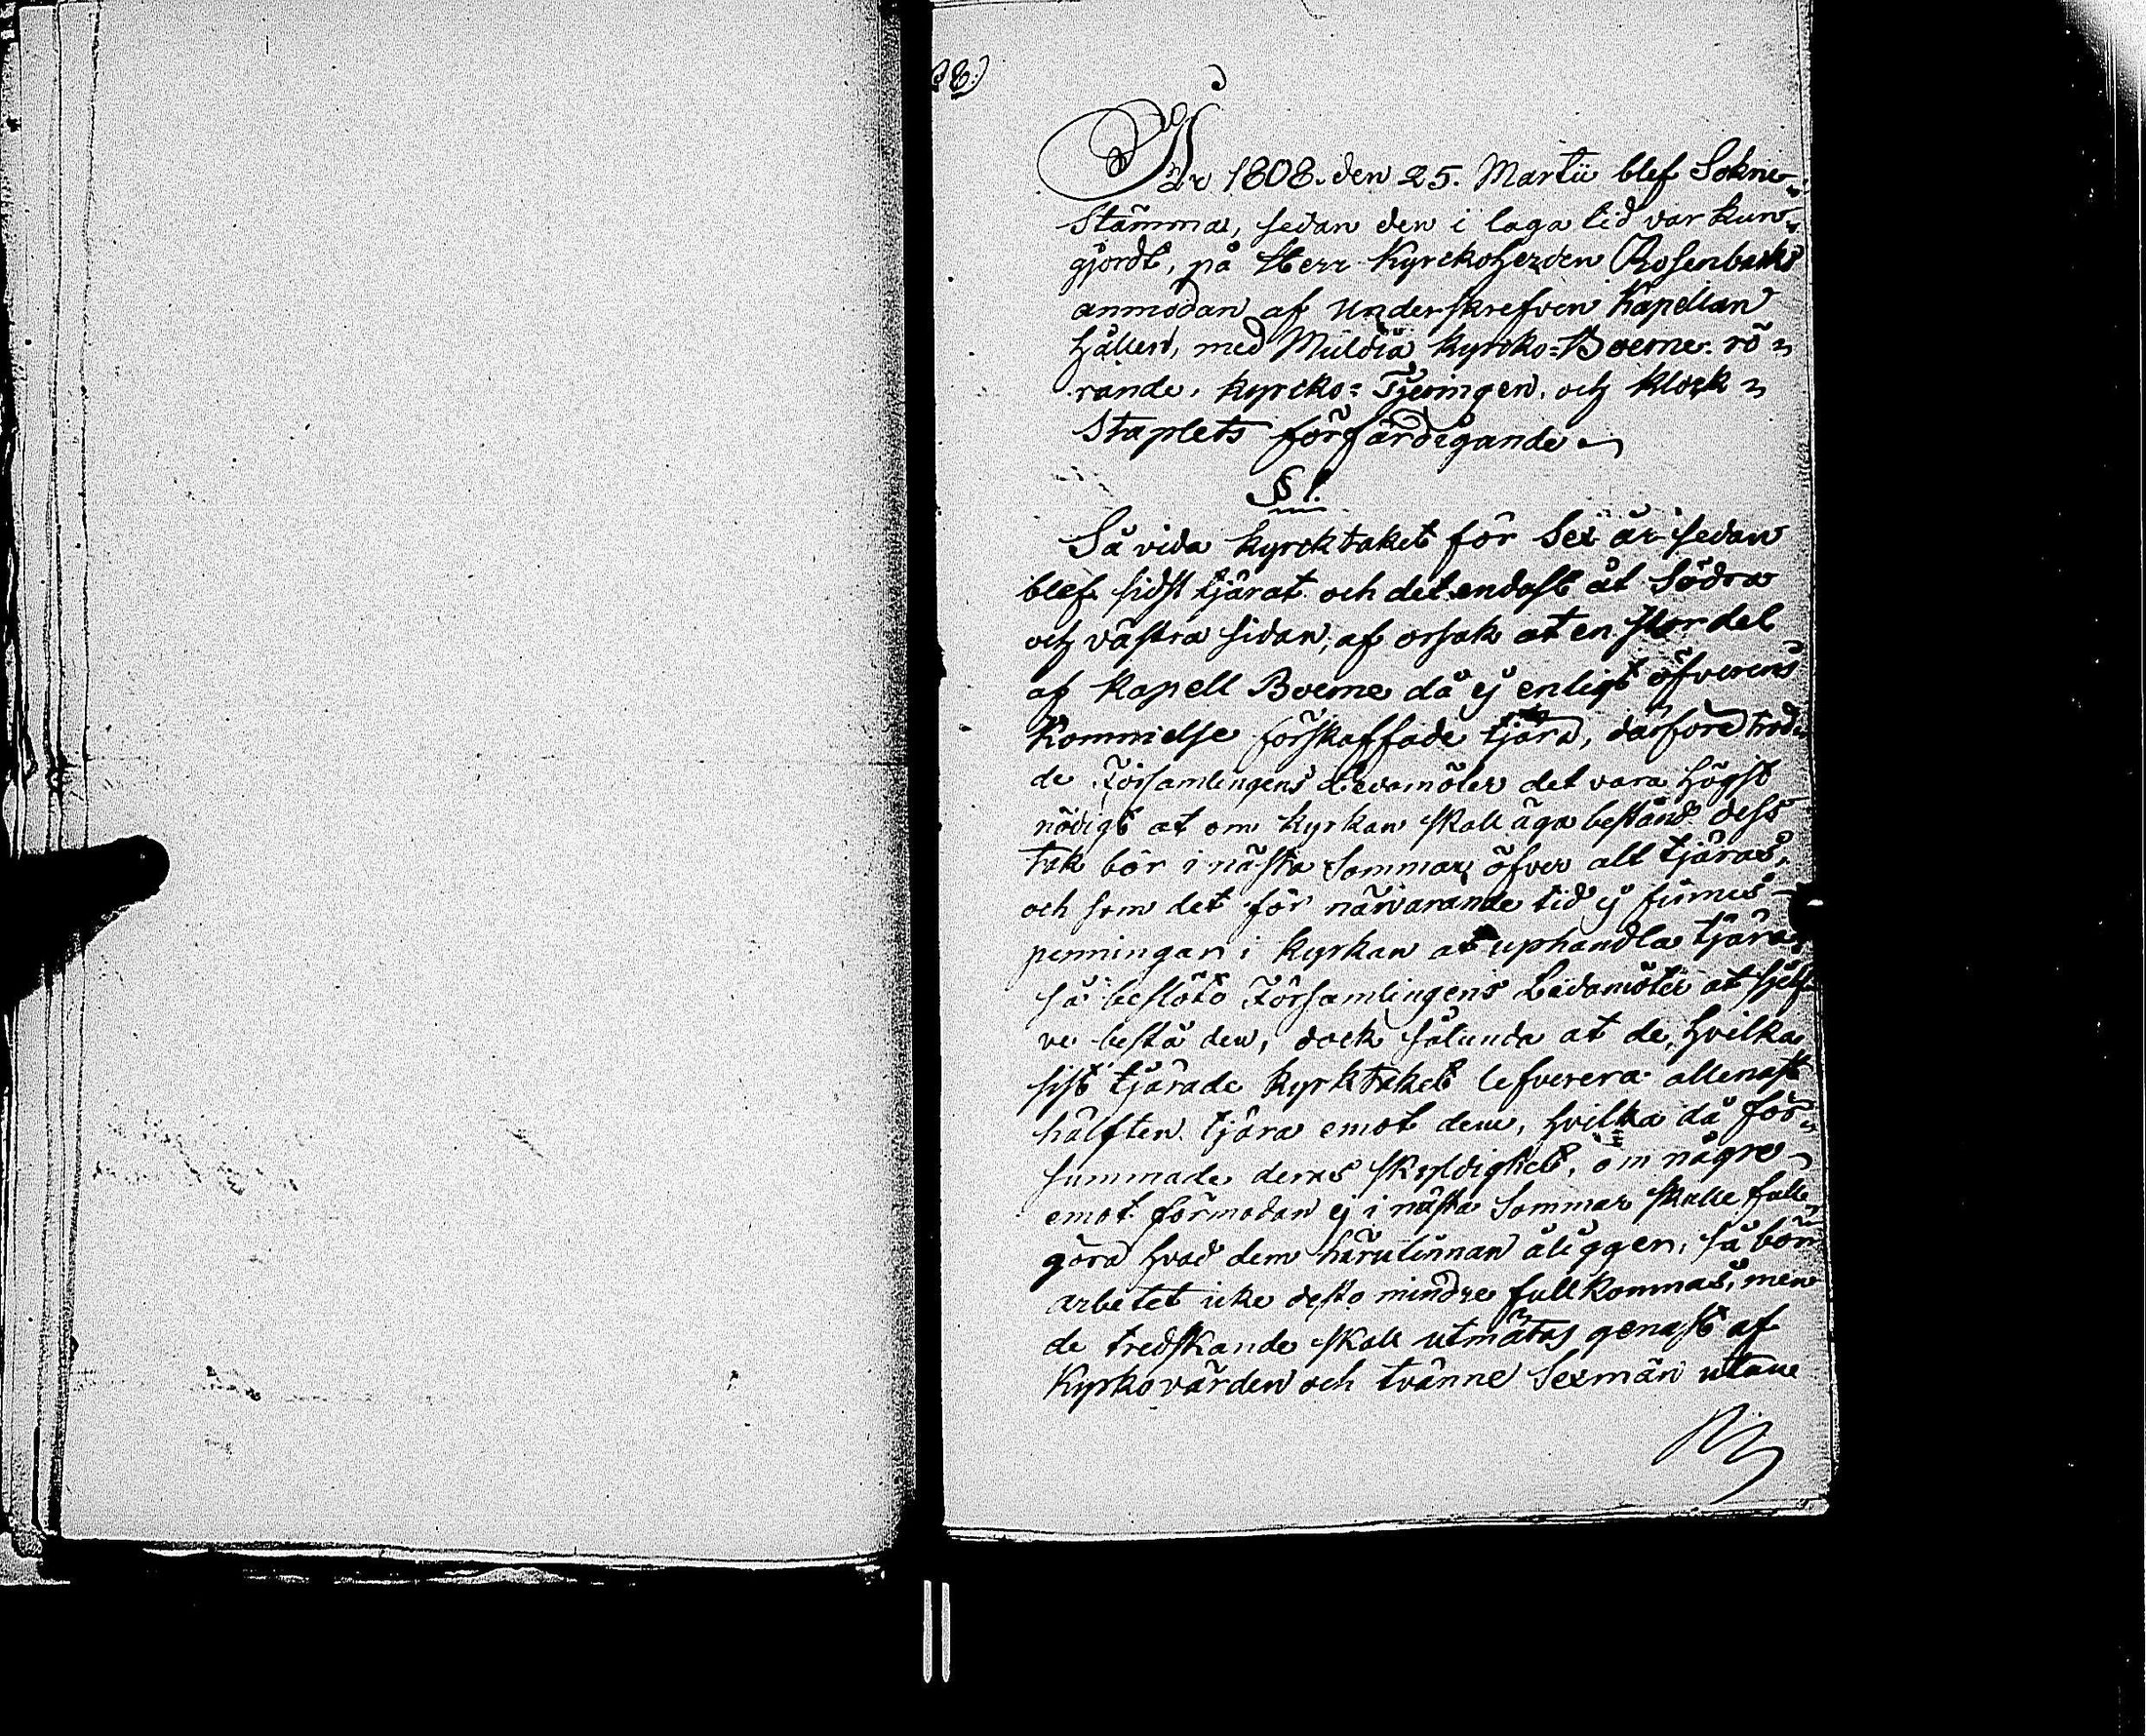 28.)
År 1808. den 25. Martii blef Sokne-
stämma, sedan den i laga tid var kun-
gjordt, på Herr Kyrckoherden Rosenbacks
anmodan af Underskrefven Kapellan
hållen, med Muldia kyrcko-Boerne rö-
rande, kyrcko-Tjeringen, och klock-
Staplets förfärdigande
§ 1.
Så vida kyrcktaket för Sex år sedan
blef sidst tjärat och det endast åt Södra
och västra sidan, af orsak at en stor del
af Kapell Boerne då ej enligt öfverens
Kommelse förskaffade tjära, därföre trod-
de Församlingens Ledamöter det vara högst
nödigt at om kyrkan skall äga bestånd dess
tak bör i nästa Sommar öfver alt tjäras,
och som det för närvarande tid ej finnes
penningar i kyrkan at uphandla tjära,
så beslöto Församlingens Ledamöter at sjelf-
ve bestå den, dock sålunda at de, hvilka
sist tjärade kyrktaket lefverera allenast
hälften tjära emot dem, hvilka då för-
summade deras skyldighet, om någre
emot förmodan ej i nästa Sommar skulle full-
göra hvad dem härutinnan åligger, så bör
arbetet icke desto mindre fullkommas, men
de tredskande skall utmätas genast af
Kyrkovärden och tvänne Sexmän utaue